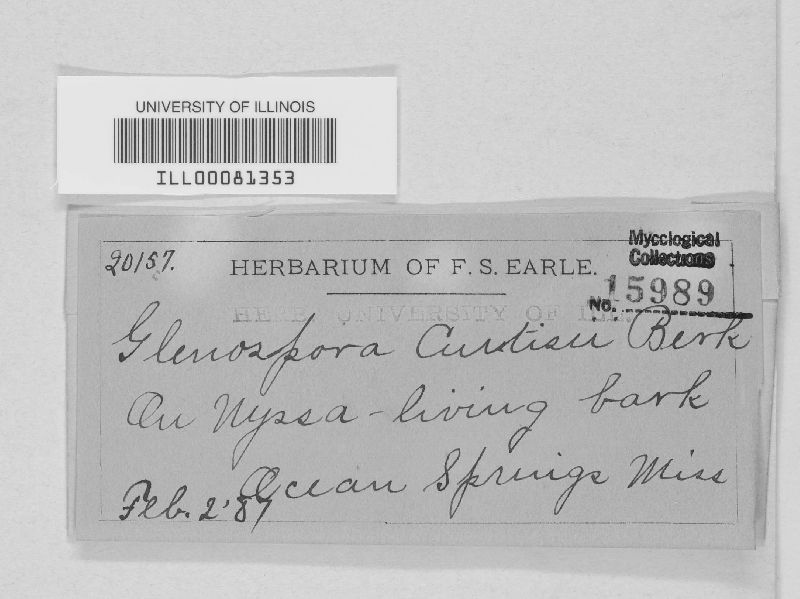 UNIVERSITY OF ILLINOIS
ILL00081353
20157.
HERBARIUM OF F. S. EARLE.
Mycological
Collections
No. 15989
HERB. UNIVERSITY OF ILL.
Glenospora Curtisii Berk
On Nyssa - living bark
Ocean Springs Miss
Feb. 2 '87